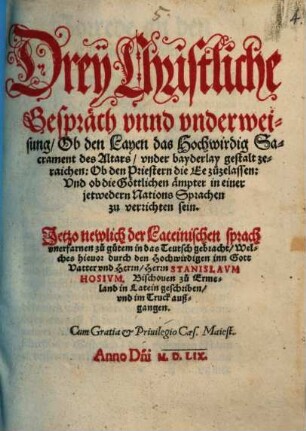 5
4.
Dreÿ Christliche
Gespräch vnnd vnderwei-
sung/ Ob den Layen das Hochwirdig Sa-
crament des Altars/ vnder bayderlay gestalt ze-
raichen: Ob den Priestern die Ee zůzelassen:
Vnd ob die Göttlichen ämpter in einer
jetwedern Nations Sprachen
zu verrichten sein.
Jetzo newlich der Lateinischen sprach
vnerfarnen zů gůtem in das Teutsch gebracht/ Wel-
ches hieuor durch den Hochwirdigen inn Gott
Vatter vnd Herrn/ Herrn STANISLAVM
HOSIVM, Bischouen zů Erme-
land in Latein geschriben/
vnd im Truck auß-
gangen.
Cum Gratia & Priuilegio Cæs. Maiest.
Anno Dñi M. D. LIX.